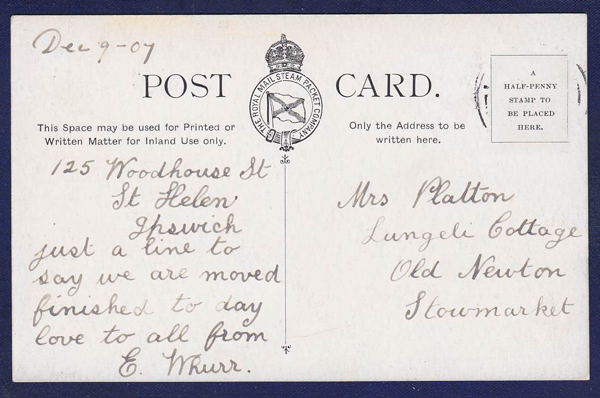 Dec 9-07
POST CARD.
THE ROYAL MAIL STEAM PACKET COMPANY
A
HALF-PENNY
STAMP TO
BE PLACED
HERE.
This Space may be used for Printed or
Written Matter for Inland Use only.
Only the Address to be
written here.
125 Woodhouse St
St Helen
Ipswich
just a line to
say we are moved
finished to day
love to all from
E. Whurr.
Mrs Platton
Lungeli Cottage
Old Newton
Stowmarket